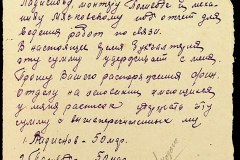 Ладисову, монтёру Полиеву и меха-
нику Мяжовскому под отчет для
ведения работ по связи.
В настоящее время Бухгалтерия
эту сумму удерживает с меня.
Прошу Вашего распоряжения фин.
отделу на основании имеющихся
у меня расписок удержать эту
сумму с вышеперечисленных лиц
1. Ладиснов - 50 млр.
50 млр.